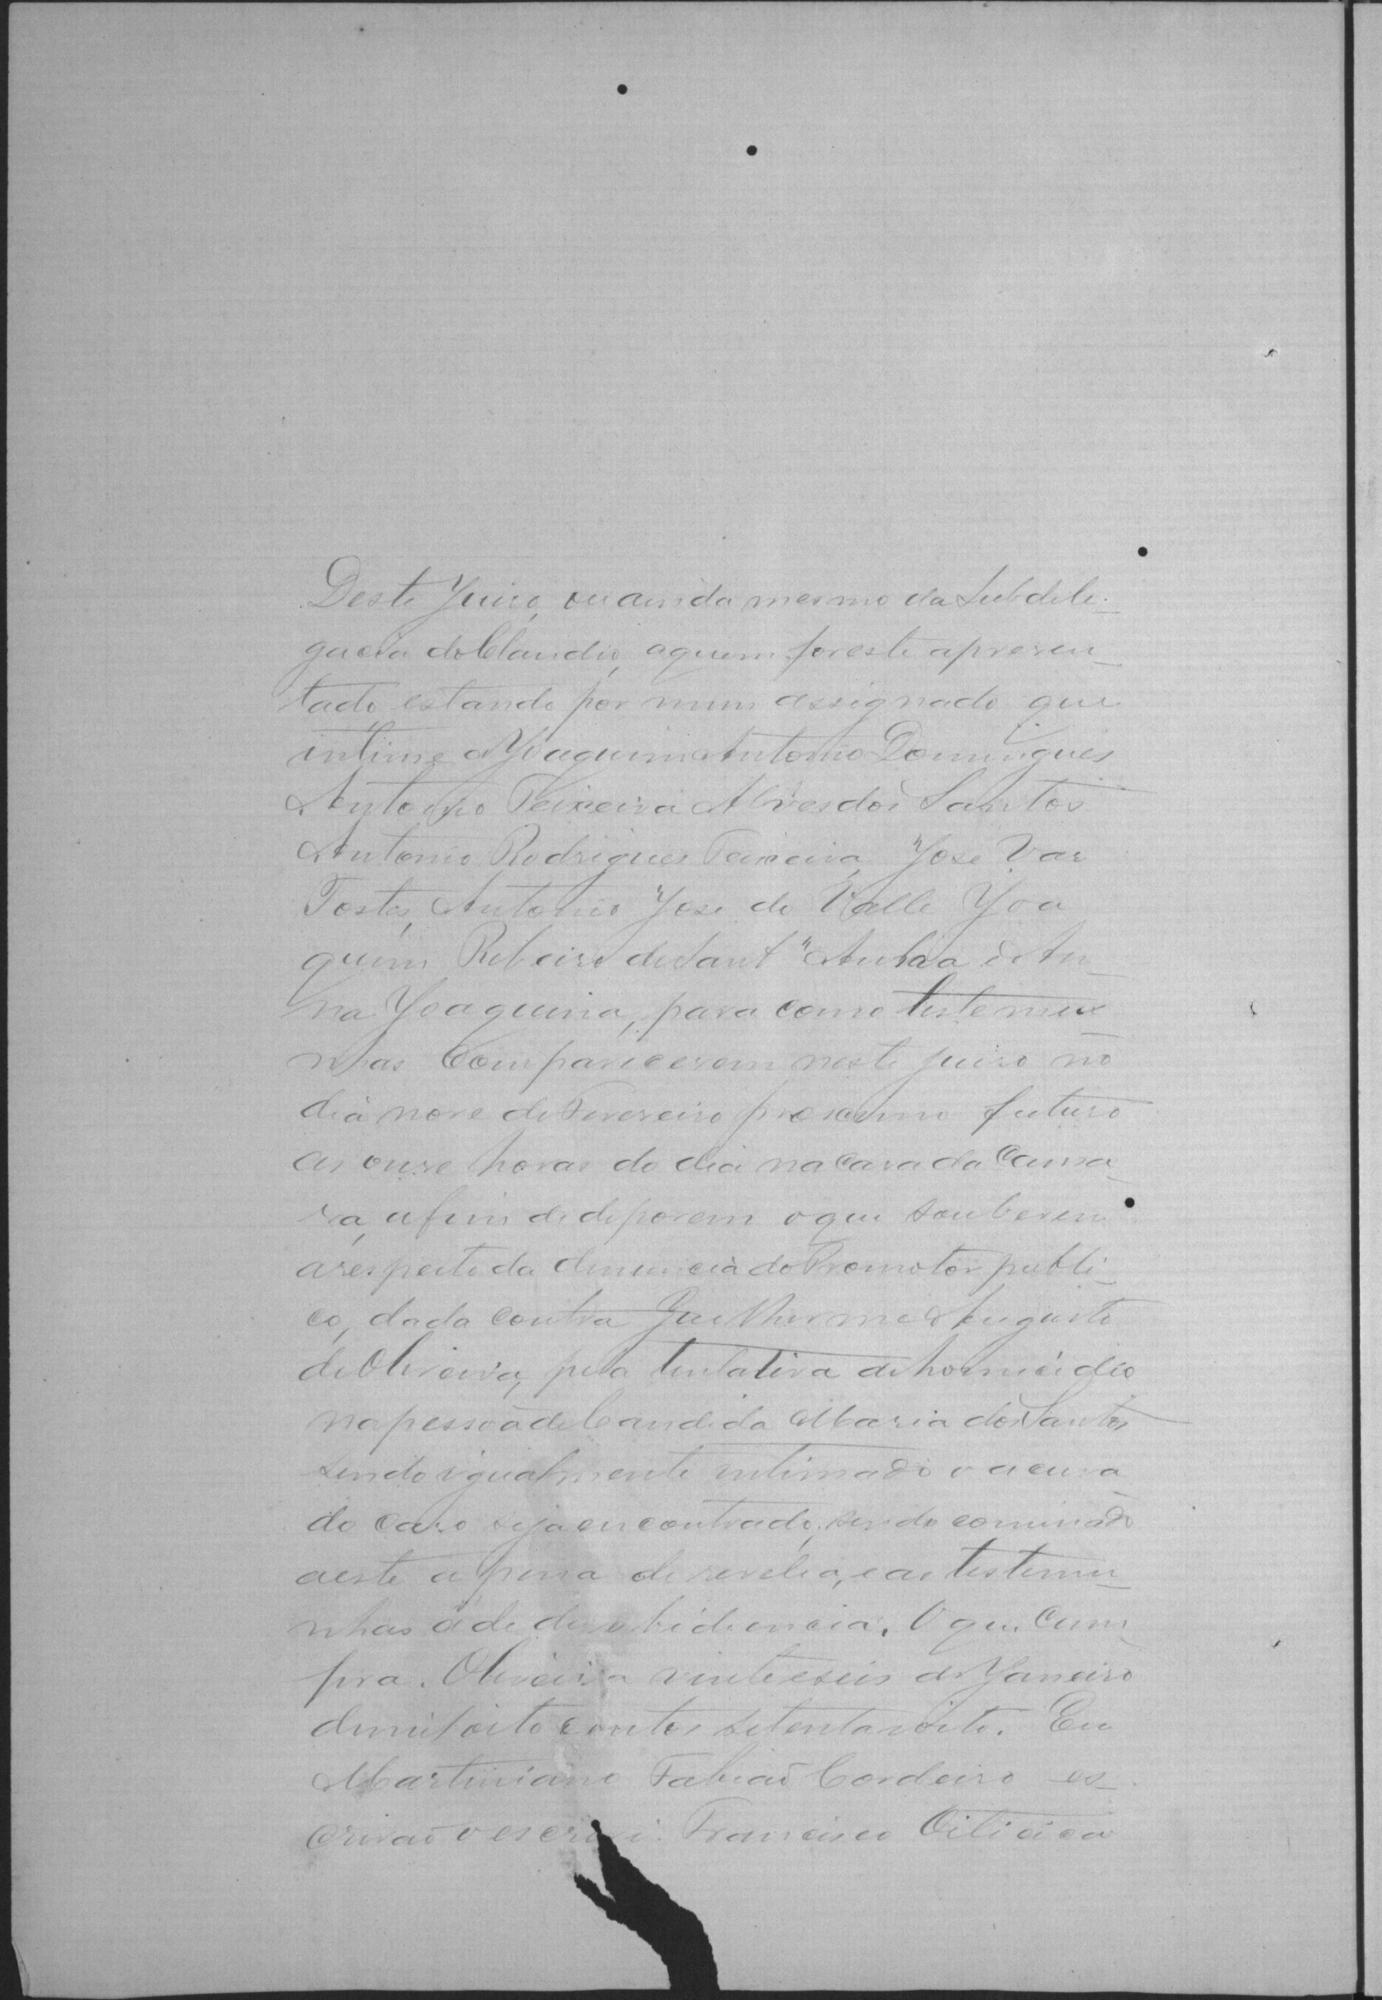 Deste Juiso, ou ainda mesmo da Subdele-
gacia do Claudio, aquem for este apresen-
tado, estando por mim assignado que
intime a Joaquim Antonio Domingues
Antonio Teixeira Alves dos Santos
Antonio Rodrigues Teixeira, José Vas
Tostes, Antonio José do Valle Joa
quim Ribeiro de Sant'Anna e An-
na Joaquina, para como testemu
nhas comparecerem neste juiso no
dia nove de Fevereiro proximo futuro
as onse horas do dia na casa da Cama
ra, afim de deporem o que souberem
a respeito da denuncia do Promotor publi-
co, dada contra Guilherme Augusto
de Oliveira, pela tentativa de homicidio
na pessoa de Candida Maria dos Santos
sendo igualmente intimado o acusa
do caso seja encontrado, sendo cominado
a este a pena de revelia, e as testemu-
nhas a de desobidiencia. O que cum
pra. Oliveira vinte e seis de Janeiro
de mil oito centos setenta e oito. Eu
Martiniano Fabião Cordeiro es-
crivão o escrevi. Francisco Oiticica